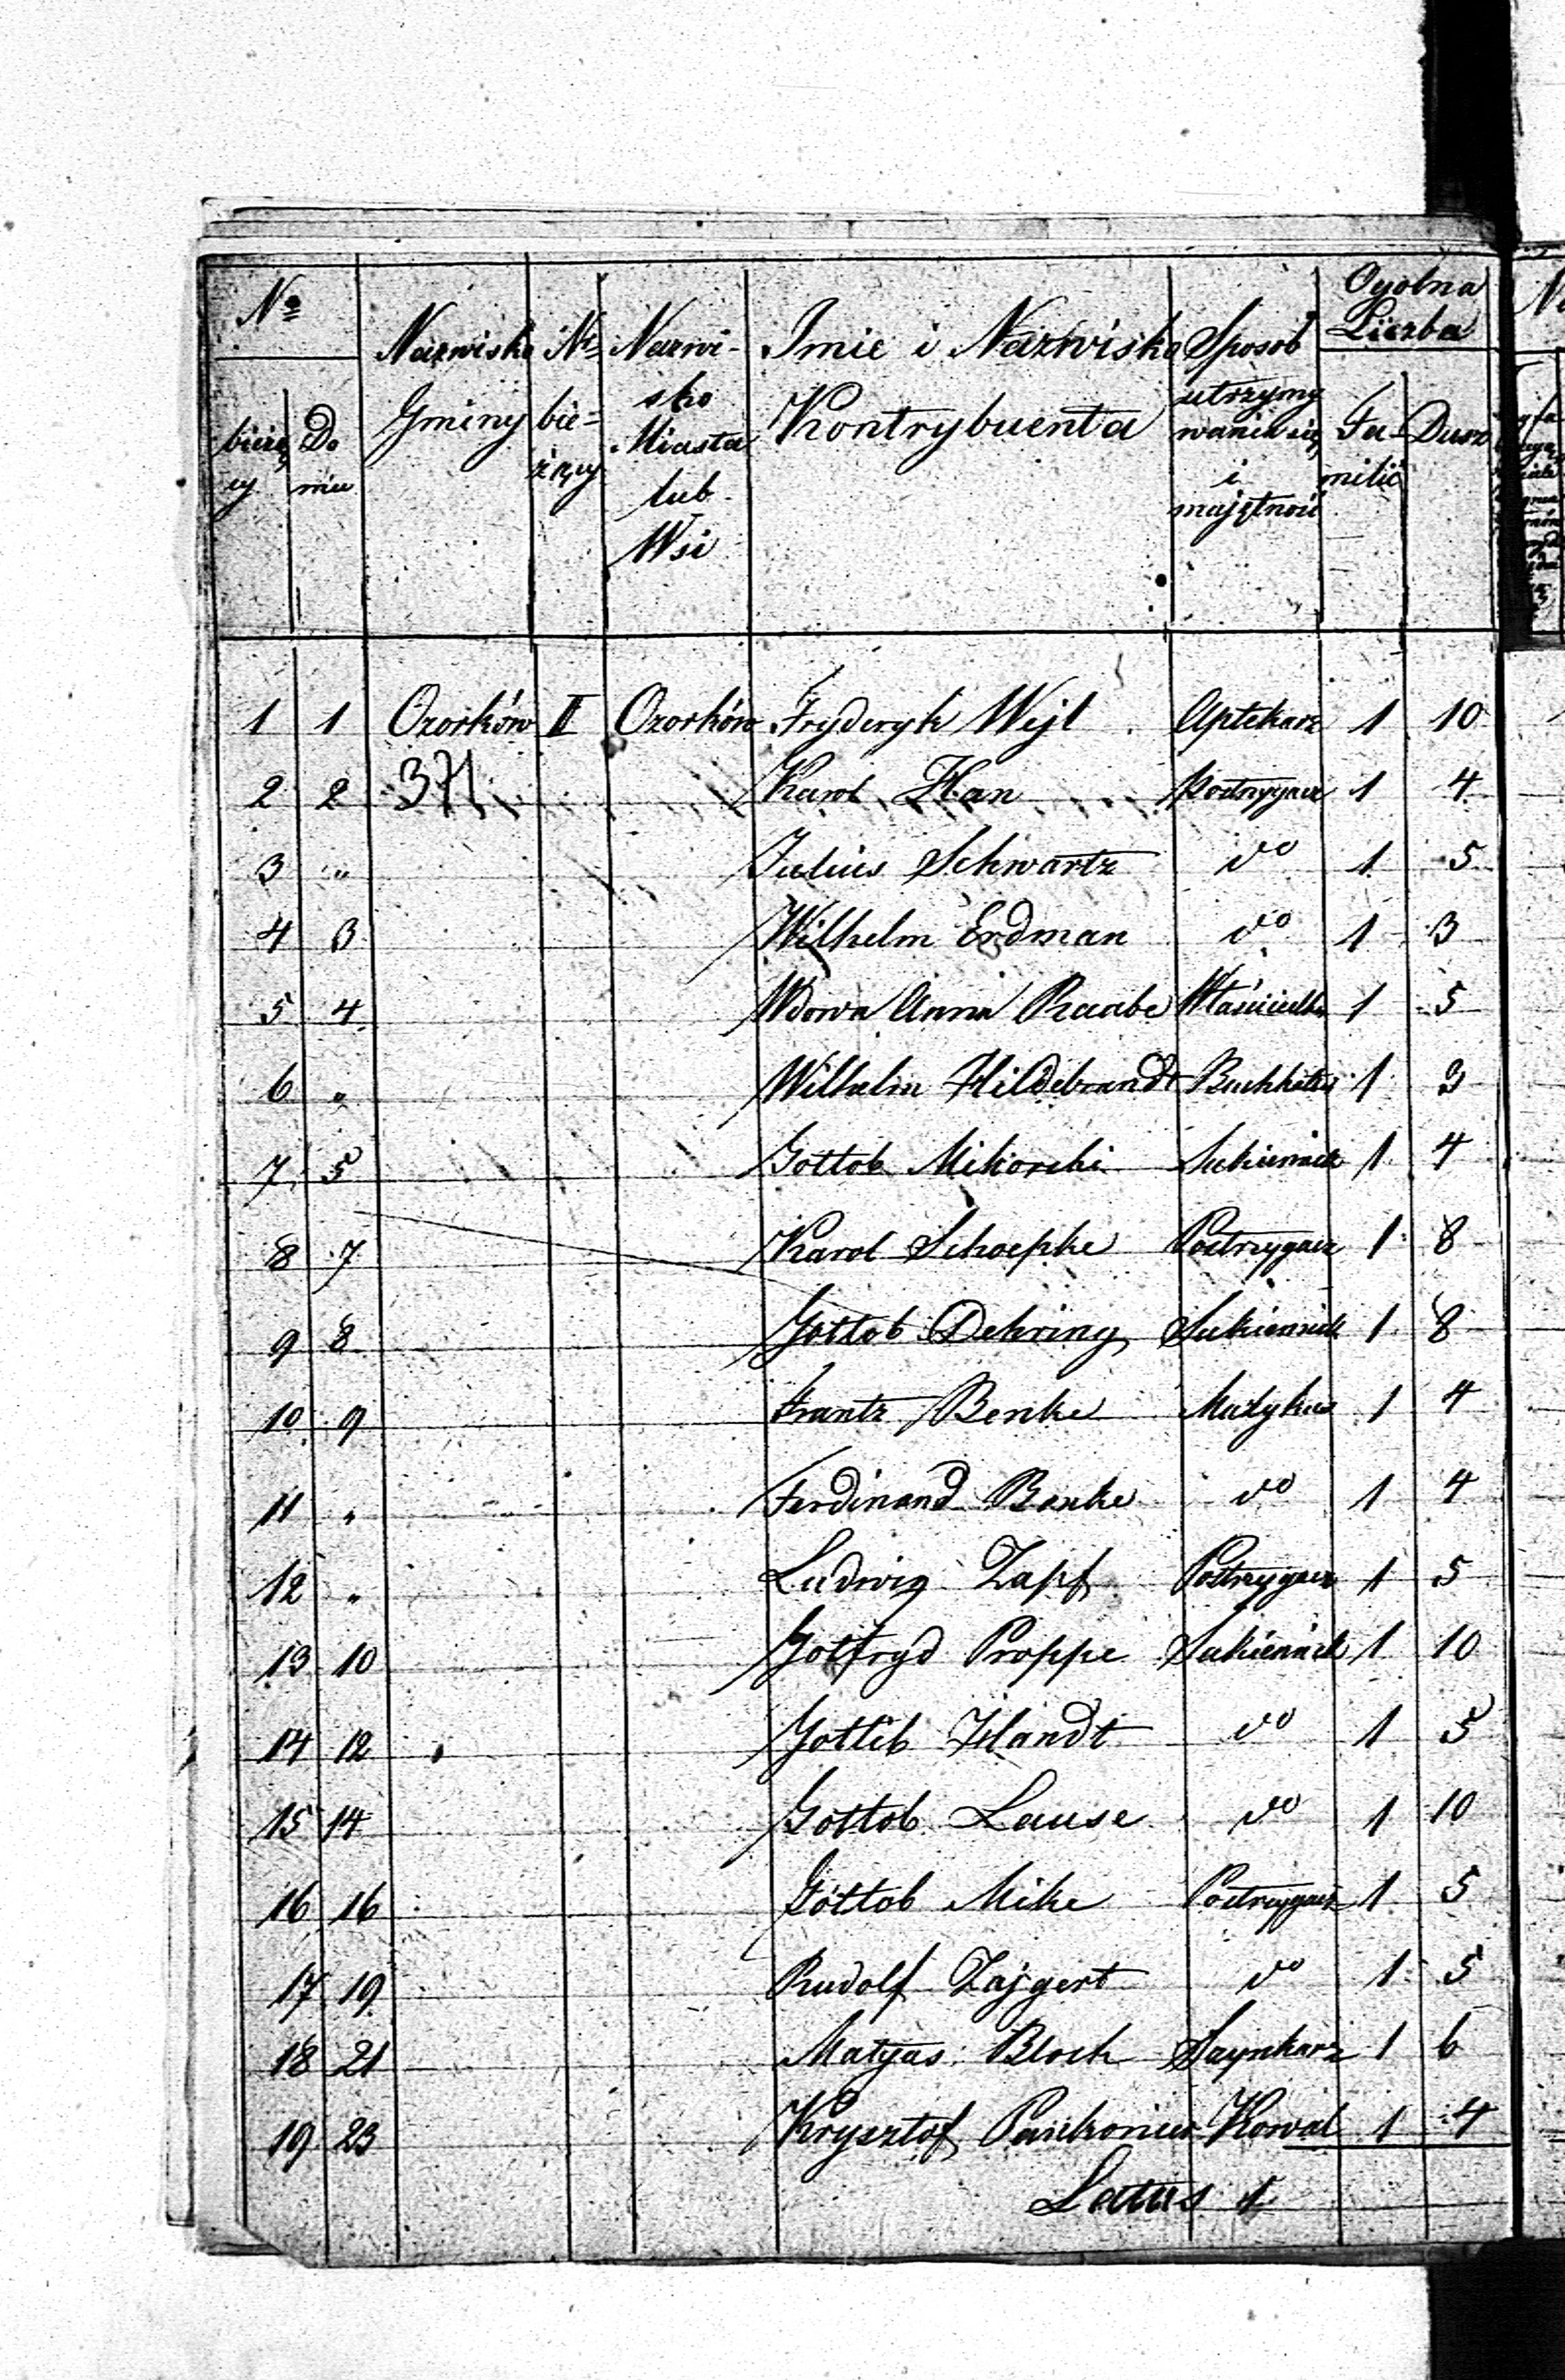 Nº Nazwisko Nr Nazwi- Imie i Nazwisko Sposob Ogolna
Liczba
bieżący Do mu Gminy bie- żący sko Miasta lub Wsi Kontrybuenta utrzymy wania się i majętność Fa milii Dusz
1 1 Ozorków II Ozorków Fryderyk Wejl Aptekarz 1 10
2 2 371 Karol Han Postrzygacz 1 4
3 " Julius Schwartz do 1 5
4 3 Wilhelm Erdman do 1 3
5 4 Wdowa Anna Raabe Właścicielka 1 5
6 " Wilhelm Hildebrandt Buchhalter 1 3
7 5 Gottob Mikorski Sukiennik 1 4
8 7 Karol Schoepke Postrzygacz 1 8
9 8 Gottob Dehring Sukiennik 1 8
10 9 Frantz Benke Muzykus 1 4
11 " Ferdinand Benke do 1 4
12 " Ludwig Zapf Postrzygacz 1 5
13 10 Gotfryd Proppe Sukiennik 1 10
14 12 Gottlib Handt do 1 5
15 14 Gottob Lause do 1 10
16 16 Gottob Mike Postrzygacz 1 5
17 19 Rudolf Zajgert do 1 5
18 21 Matyas Bloch Szynkarz 1 6
19 23 Krysztof Kowal 1 4
Latus 1